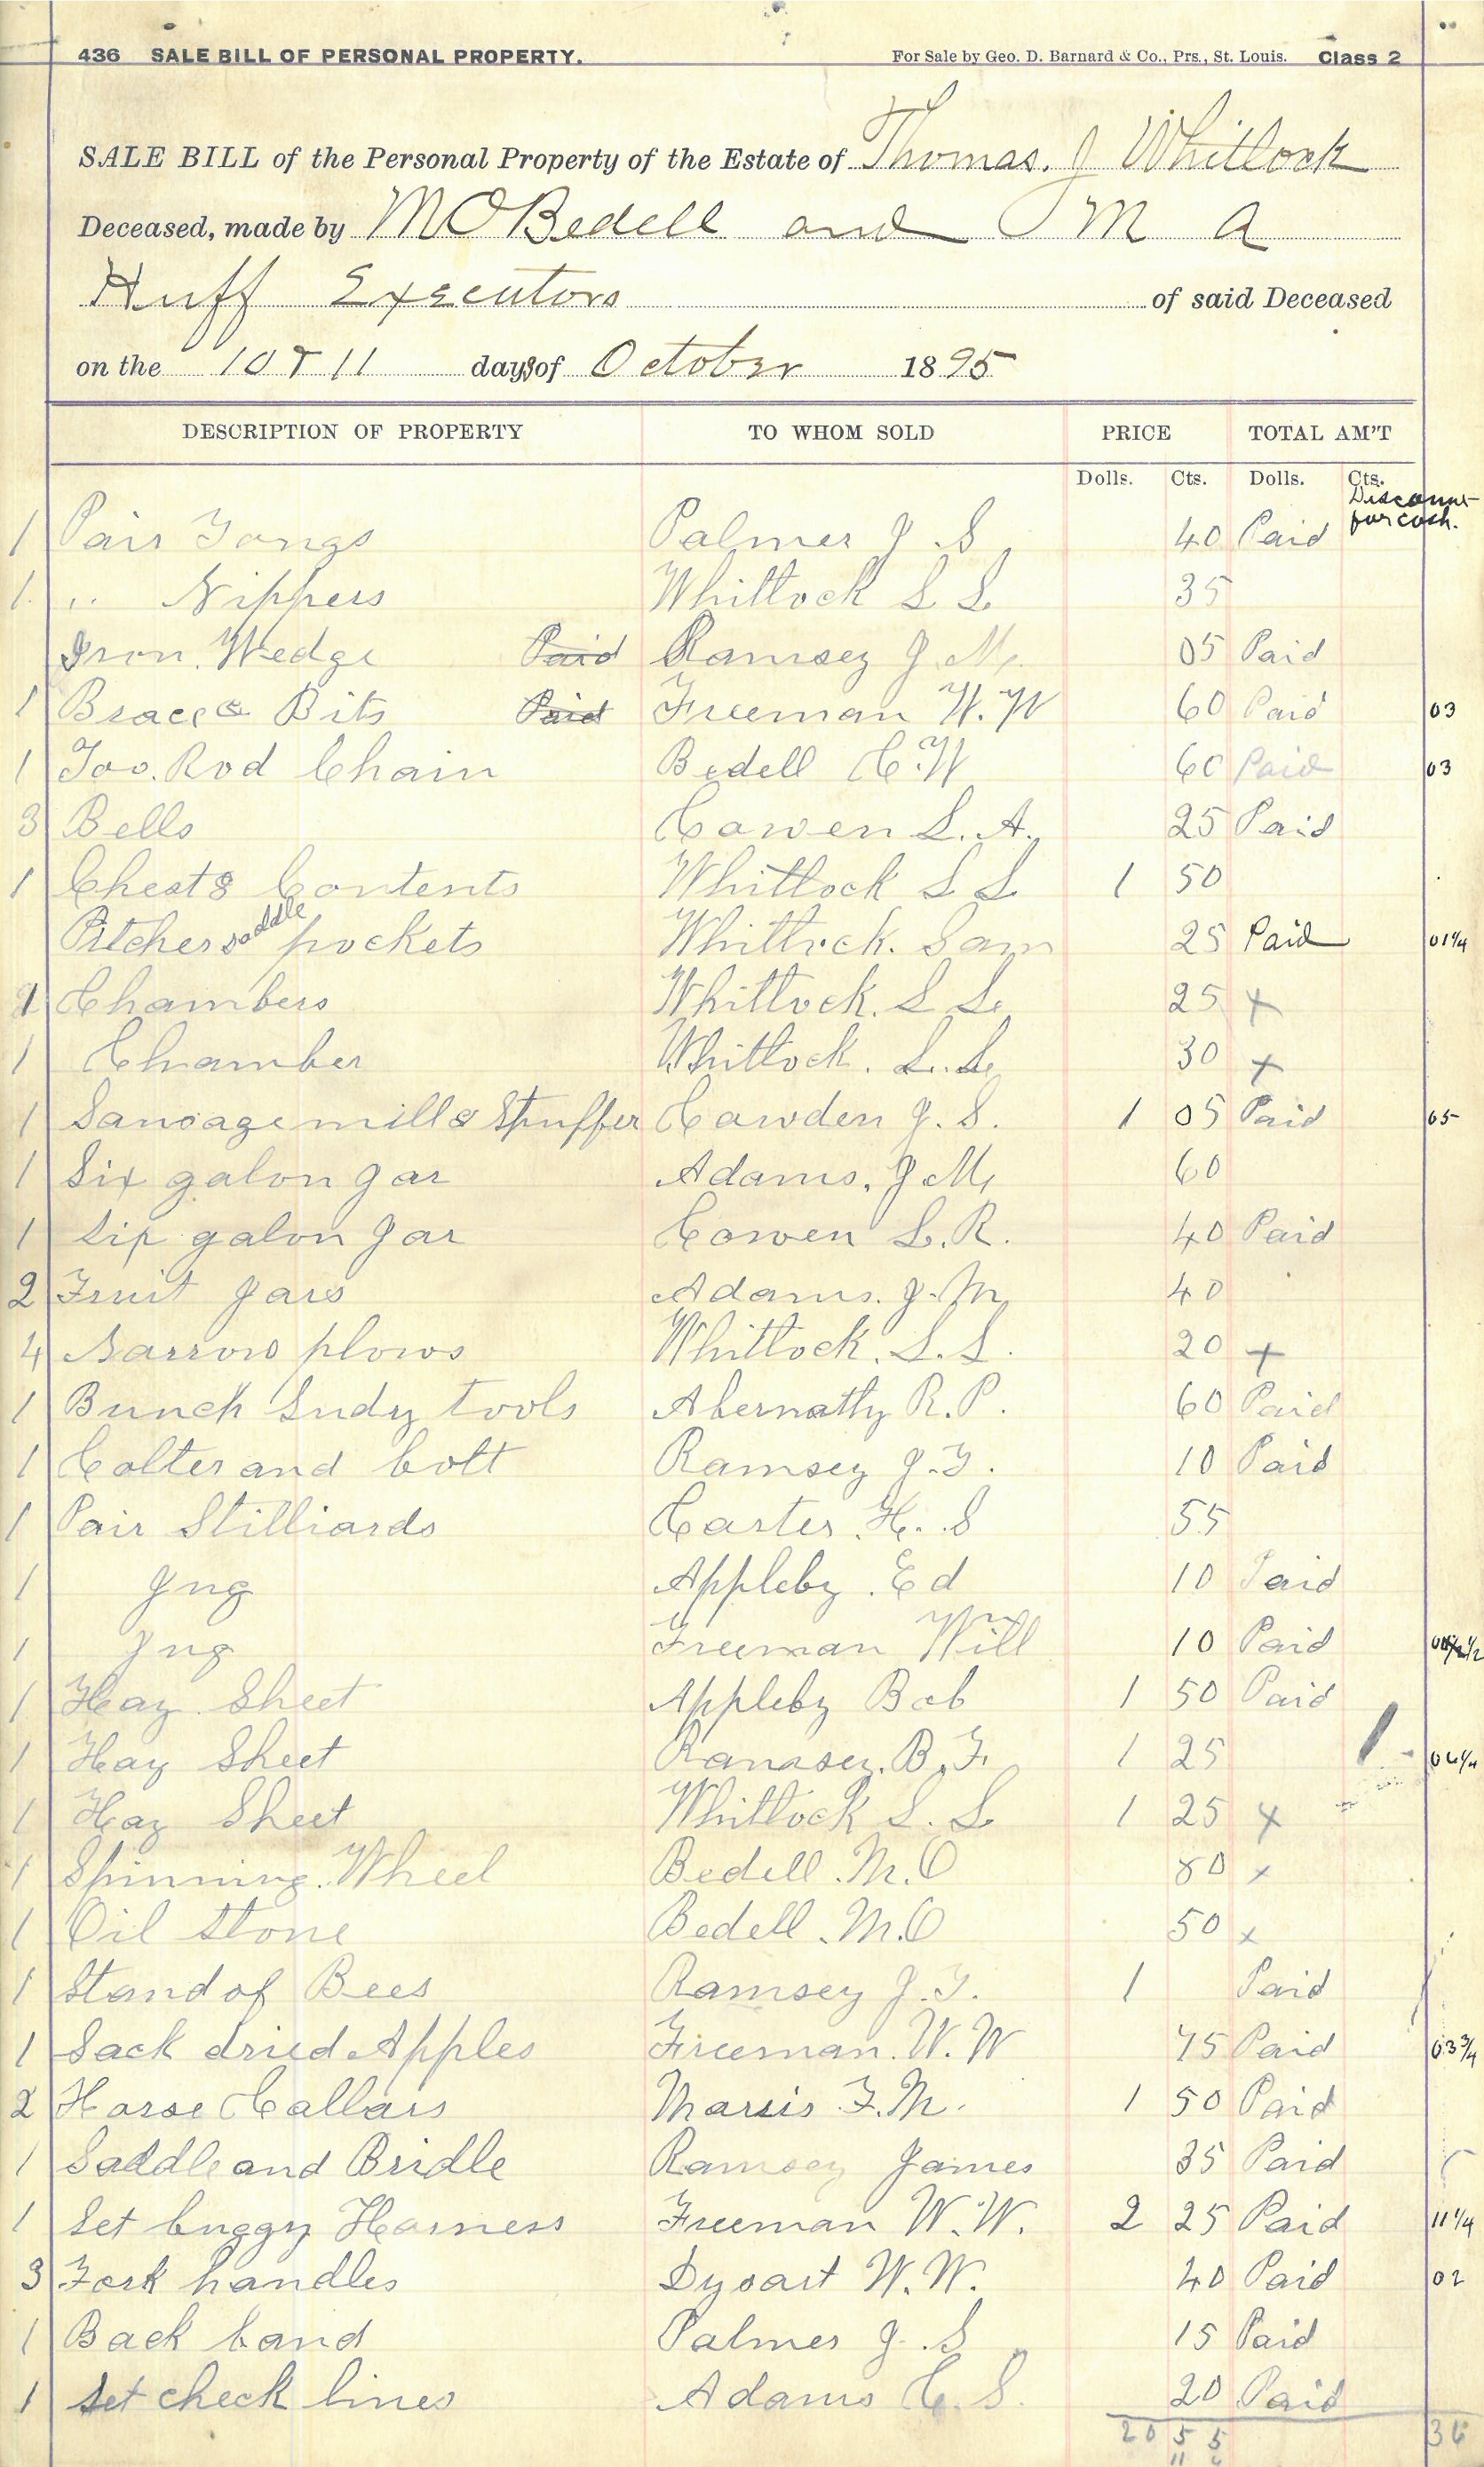 436 SALE BILL OF PERSONAL PROPERTY. For Sale by Geo. D. Barnard & Co., Prs., St. Louis. Class 2
SALE BILL of the Personal Property of the Estate of Thomas. J Whitlock
Deceased, made by M O Bedell and M A
Huff Executors of said Deceased
on the 10 & 11 days of October 1895
DESCRIPTION OF PROPERTY TO WHOM SOLD PRICE TOTAL AM'T
Dolls. Cts. Dolls. Cts.
Discount for cash.
1 Pair Tongs Palmer J. S 40 Paid
1. " Nippers Whitlock S L 35
Iron. Wedge Paid Ramsey J M. 05 Paid
1 Brace & Bits Paid Freeman W. W 60 Paid 03
1 Too. Rod Chain Bedell C. W 60 Paid 03
3 Bells Cowen L. A. 25 Paid
1 Chest & Contents Whitlock S L 1 50
Pitcher saddle pockets Whitlock. Sam 25 Paid 01 1/4
1 Chambers Whitlock. S L 25 x
1 Chamber Whitlock. S. L 30 x
1 Sausage mill & Stuffer Cawden J. S. 1 05 Paid 05
1 Six galon Jar Adams. J M. 60
1 Six galon Jar Cowen L. R. 40 Paid
2 Fruit Jars Adams. J. M. 40
4 Narrow plows Whitlock. S. L. 20 x
1 Bunch Sudry tools Abernathy R. P. 60 Paid
1 Colter and bolt Ramsey J. T. 10 Paid
1 Pair Stilliards Carter H. S 55
1 Jug Appleby. Ed 10 Paid
1 Jug Freeman Will 10 Paid 1/2
1 Hay Sheet Appleby Bob 1 50 Paid
1 Hay Sheet Ramsey. B. F. 1 25 06 1/4
1 Hay Sheet Whitlock S. L 1 25 x
1 Spinning. Wheel Bedell. M. O 80 x
1 Oil Stone Bedell. M. O 50 x
1 Stand of Bees Ramsey J. T. 1 Paid
1 Sack dried Apples Freeman. W. W 75 Paid 03 3/4
2 Horse Collars Marris F. M. 1 50 Paid
1 Saddle and Bridle Ramsey James 35 Paid
1 Set buggy Harness Freeman W. W. 2 25 Paid 11 1/4
3 Fork handles Dysart W. W. 40 Paid 02
1 Back band Palmer J. S 15 Paid
1 Set check lines Adams C. S. 20 Paid
20 55 36